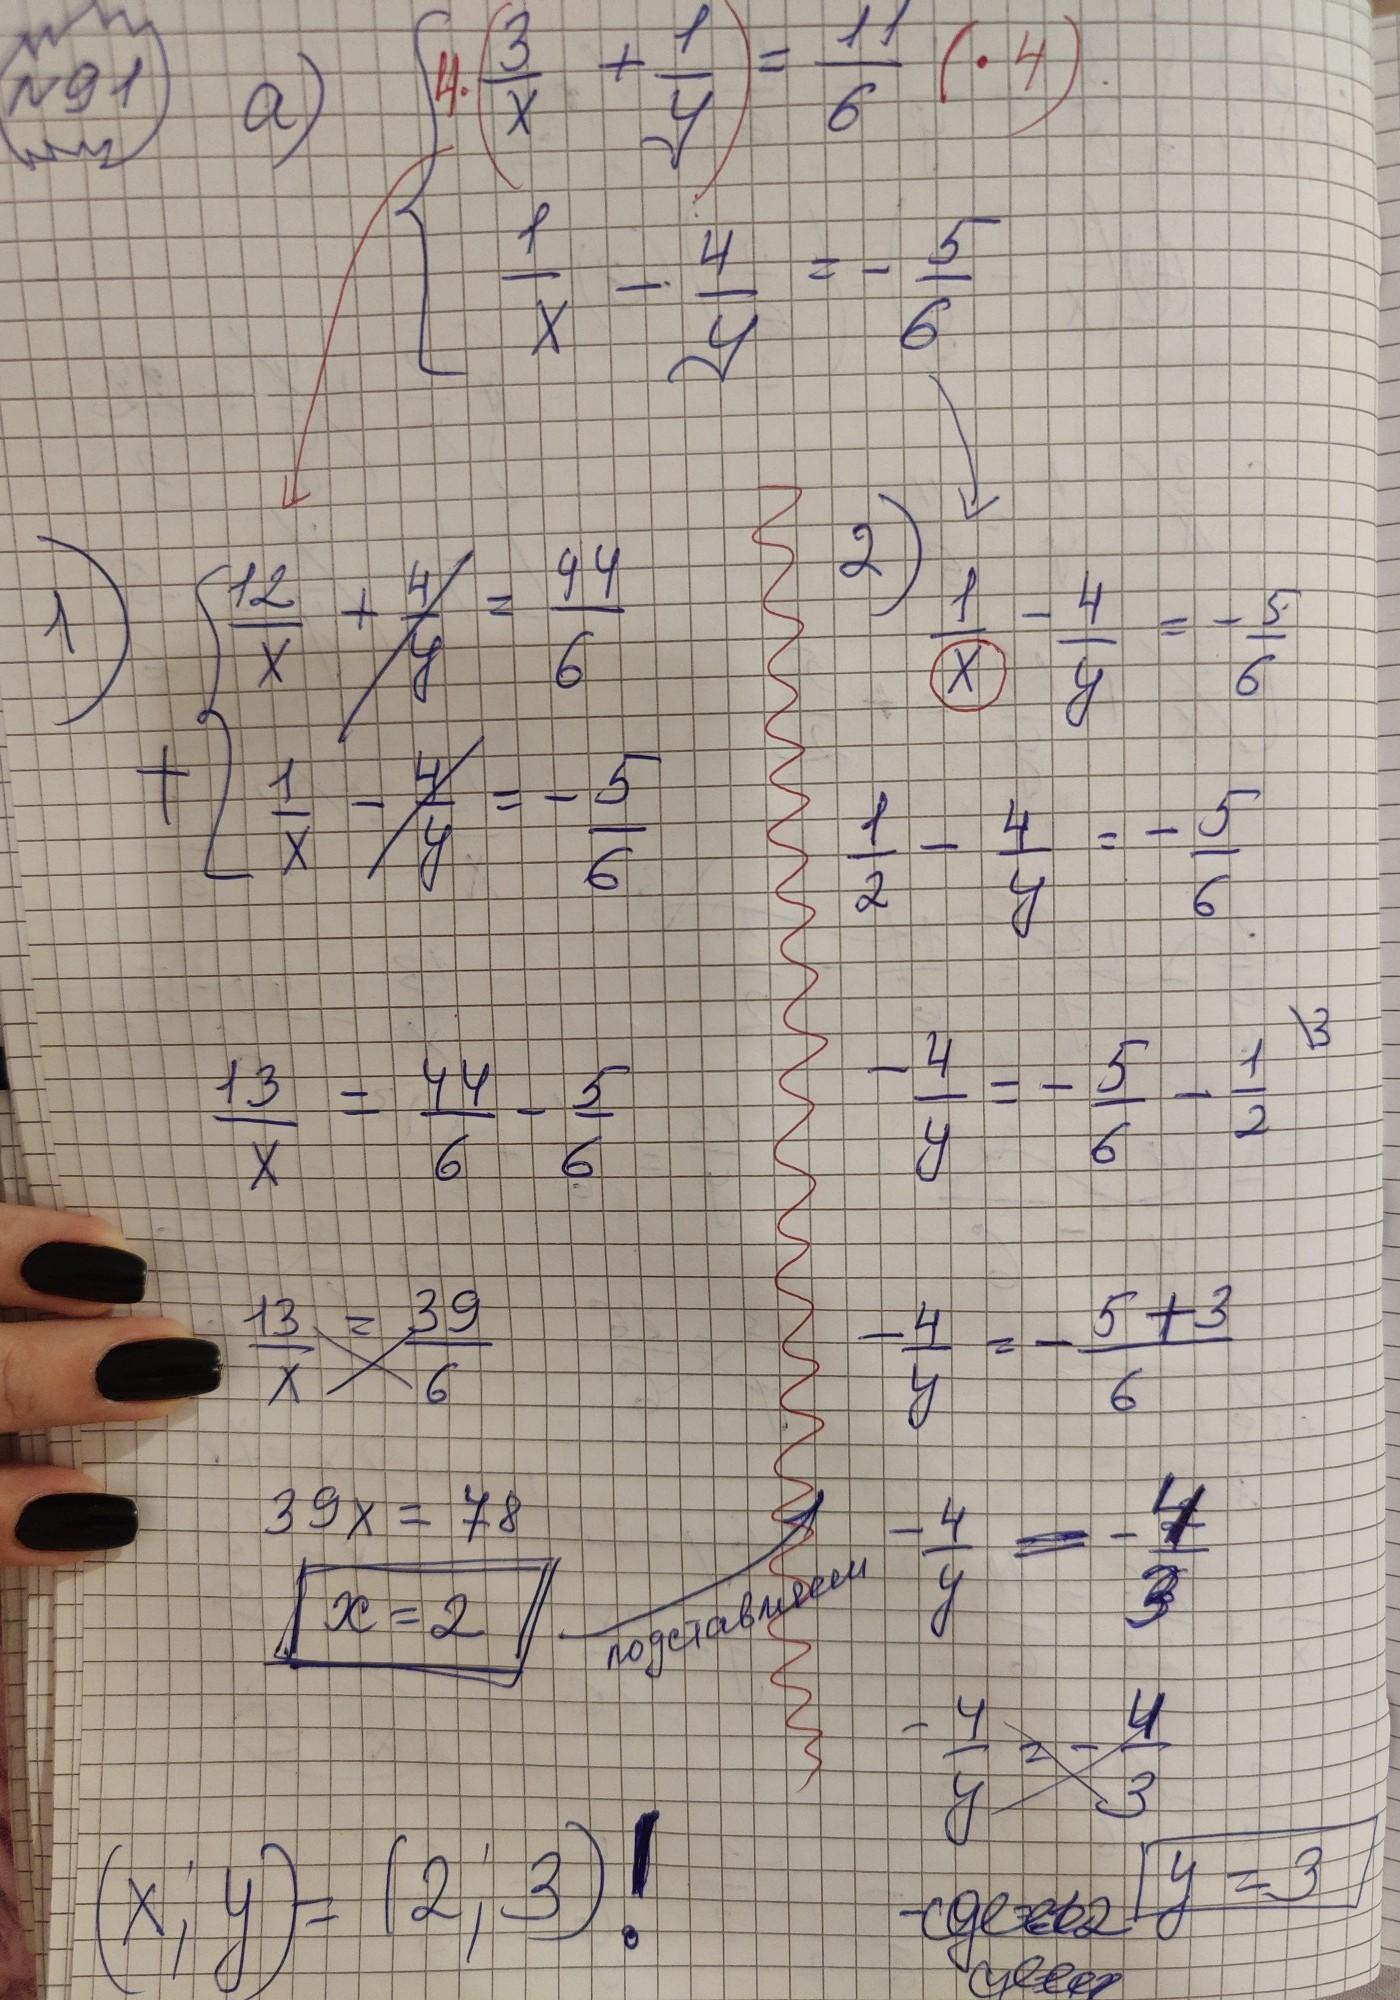 №91 а) { 4·(3/x + 1/y) = 11/6 (·4)
1/x - 4/y = - 5/6
1) { 12/x + 4/y = 44/6
+ 1/x - 4/y = - 5/6
13/x = 44/6 - 5/6
13/x = 39/6
39x = 78
x = 2
подставляем
2) 1/x - 4/y = - 5/6
1/2 - 4/y = - 5/6
- 4/y = - 5/6 - 1/2 \3
- 4/y = - 5+3/6
- 4/y = - 4/3
- 4/y = - 4/3
y = 3
(x; y) = (2; 3)!